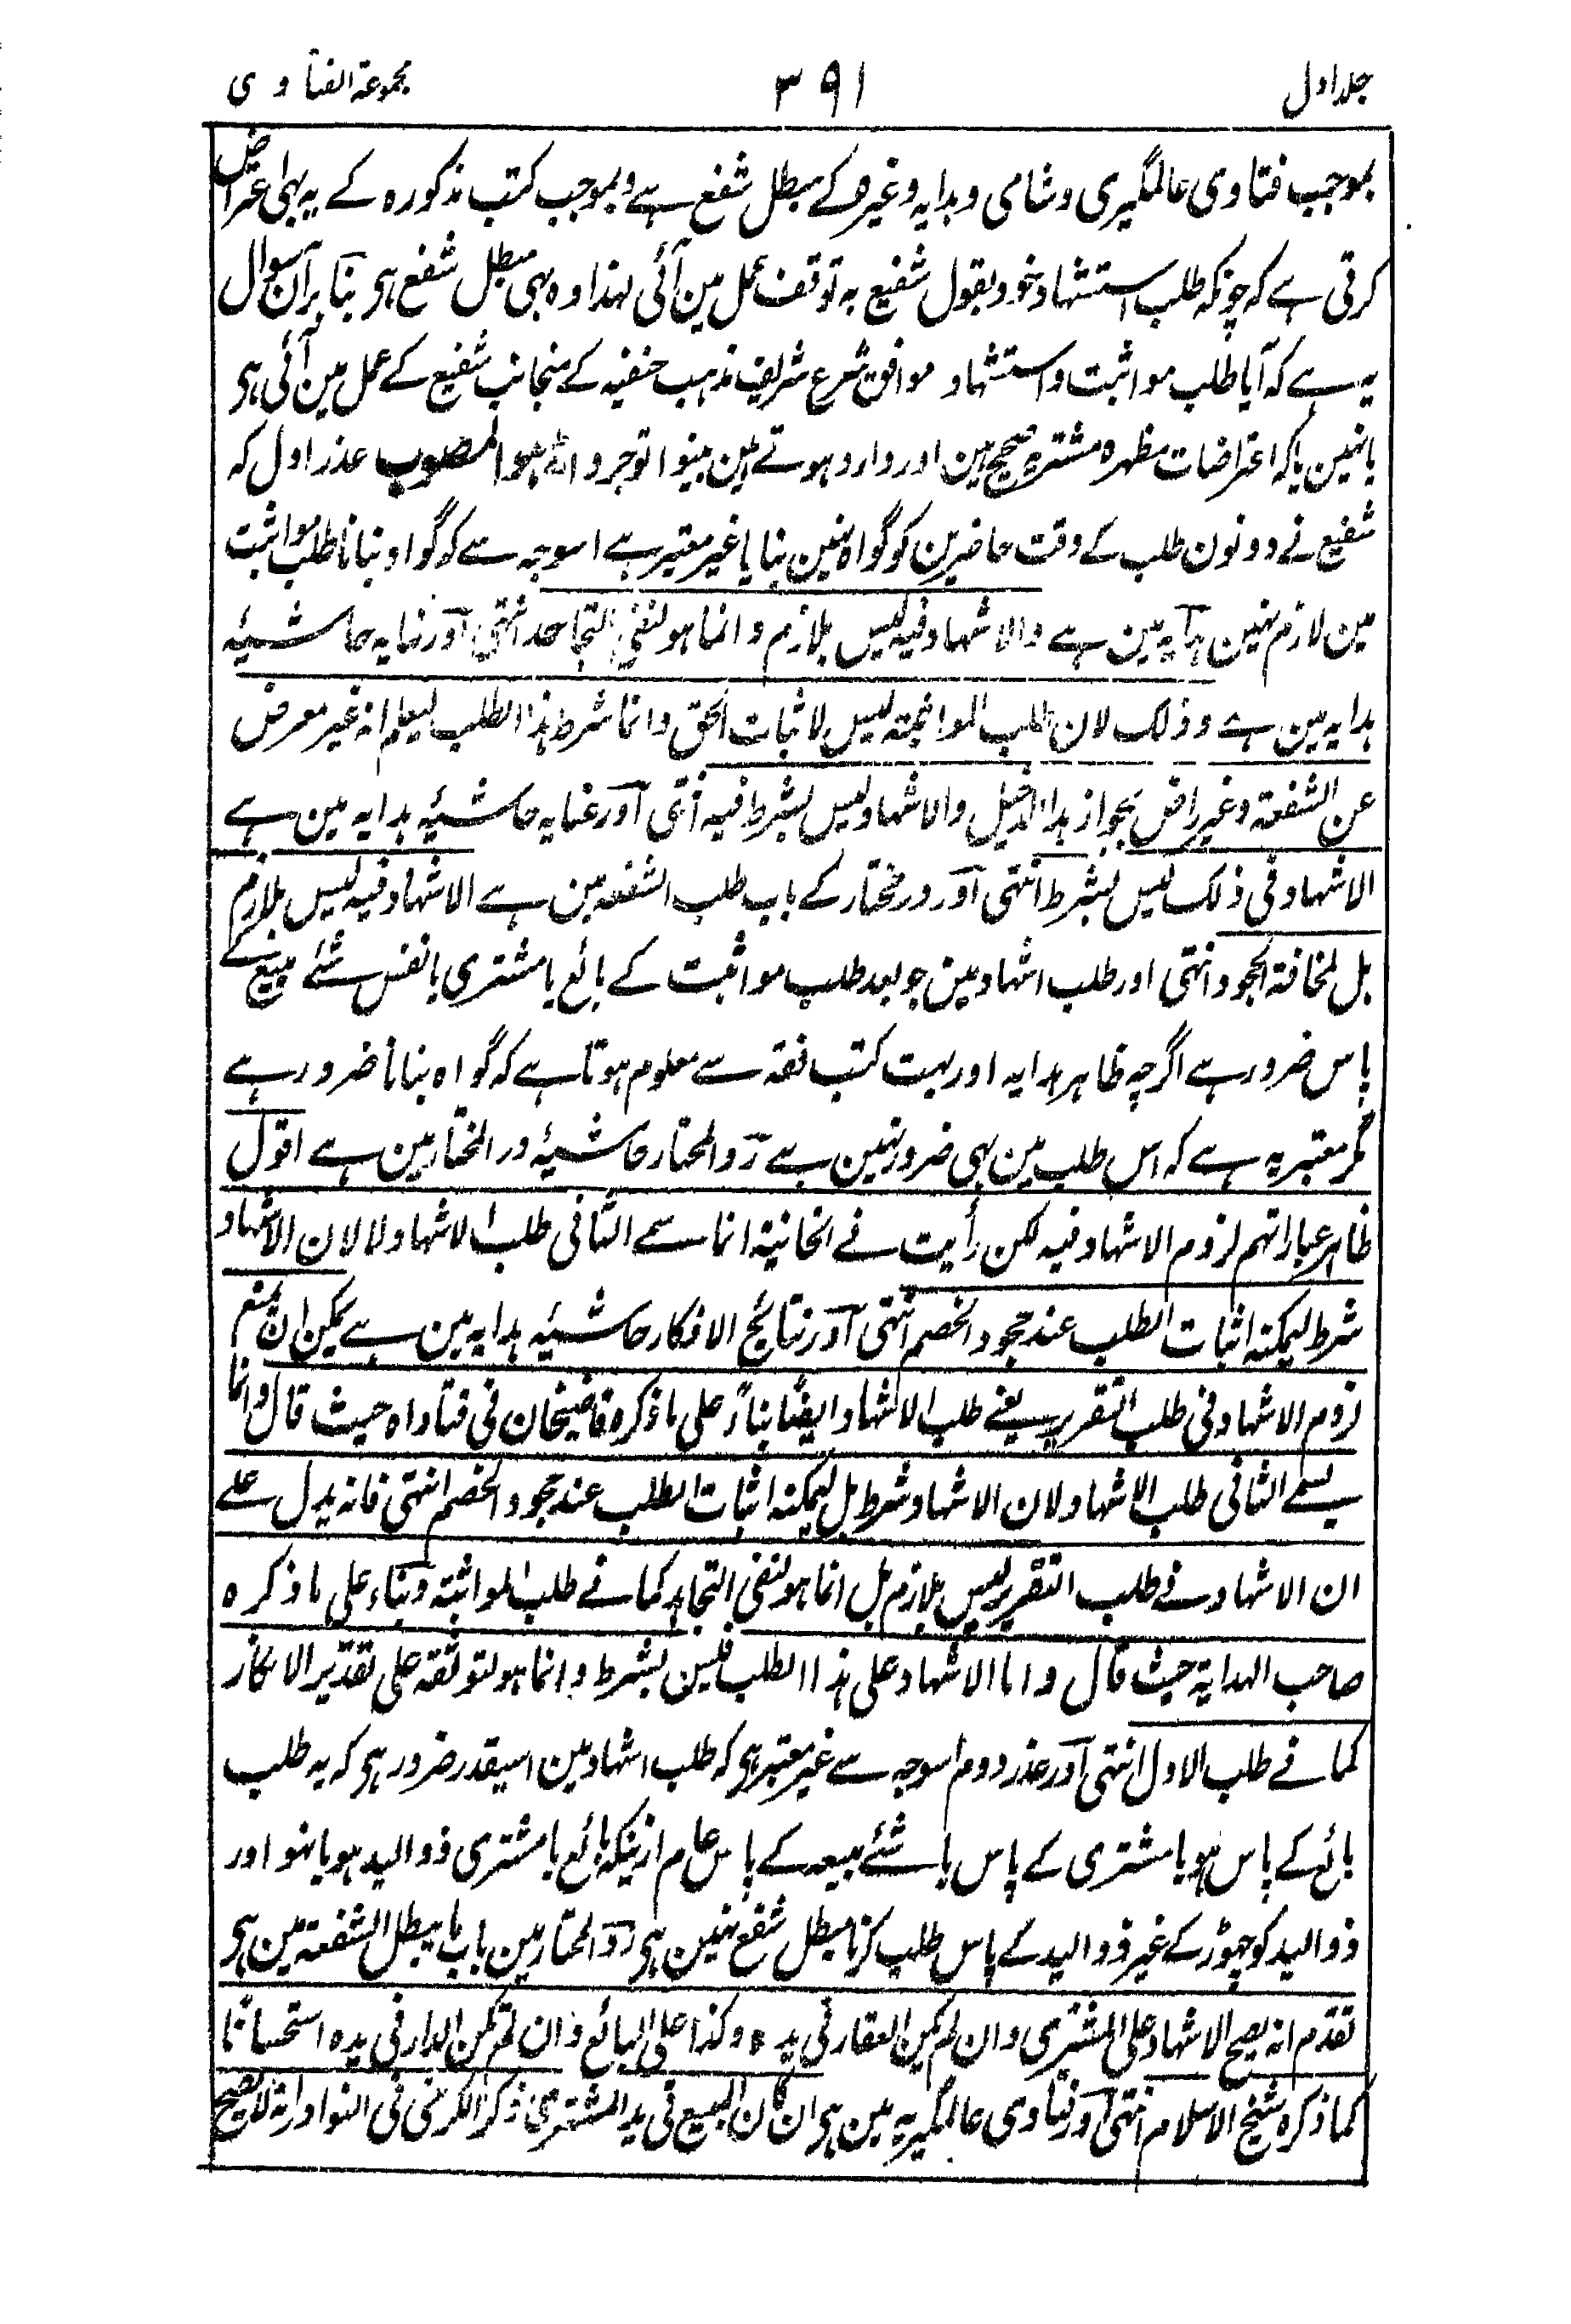 جلد اول
۳۹۱
مجموعۃ الفتاوی
بموجب فتاوی عالمگیری و شامی و ہدایہ وغیرہ کے مبطل شفع ہے و بموجب کتب مذکورہ کے یہ بہی اعتراض
کرتی ہے کہ چونکہ طلب استشہاد خود بقول شفیع بہ توقف عمل مین آئی لہذا وہ بہی مبطل شفع ہی بنا بر آن سوال
یہ ہے کہ آیا طلب مواثبت و استشہاد موافق شرع شریف مذہب حنفیہ کے منجانب شفیع کے عمل مین آئی ہی
یا نہین یا کہ اعتراضات مظہرہ مشتریہ صحیح ہین اور وارد ہوتے ہین بینوا توجروا ھو المصوب عذر اول کہ
شفیع نے دونون طلب کے وقت حاضرین کو گواہ نہین بنایا غیر معتبر ہے اسوجہ سے کہ گواہ بنانا طلب مواثبت
مین لازم نہین ہدایہ مین ہے والاشہاد فیہ لیس بلازم وانما ہو لنفی التجاحد انتہی اور کفایہ حاشیۂ
ہدایہ مین ہے وذلک لان طلب المواثبتہ لیس لاثبات الحق وانما شرط ہذا الطلب لیعلم انہ غیر معرض
عن الشفعۃ وغیر راض بجوار ہذا الدخیل والاشہاد لیس بشرط فیہ انتہی اور عنایہ حاشیۂ ہدایہ مین ہے
الاشہاد فی ذلک لیس بشرط انتہی اور درمختار کے باب طلب الشفعہ مین ہے الاشہاد فیہ لیس بلازم
بل لمخافۃ الجحود انتہی اور طلب اشہاد مین جو بعد طلب مواثبت کے بائع یا مشتری یا نفس شئے مبیع کے
پاس ضرور ہے اگرچہ ظاہر ہدایہ اور بہت کتب فقہ سے معلوم ہوتا ہے کہ گواہ بنانا ضرور ہے
مگر معتبر یہ ہے کہ اس طلب مین بہی ضرور نہین ہے رد المحتار حاشیۂ در المختار مین ہے اقول
ظاہر عباراتہم لزوم الاشہاد فیہ لکن رأیت فے الخانیۃ انما سمے الثانی طلب الاشہاد لا لان الاشہاد
شرط لیمکنہ اثبات الطلب عند جحود الخصم انتہی اور نتائج الافکار حاشیۂ ہدایہ مین ہے یمکن ان یمنع
لزوم الاشہاد فی طلب التقریر یعنے طلب الاشہاد ایضًا بناءً علی ما ذکرہ قاضیخان فی فتاواہ حیث قال وانما
یسمے الثانی طلب الاشہاد لا لان الاشہاد شرط بل لیمکنہ اثبات الطلب عند جحود الخصم انتہی فانہ یدل علے
ان الاشہاد فے طلب التقریر لیس بلازم بل انما ہو لنفی التجاحد کما فے طلب المواثبتہ وبناء علی ما ذکرہ
صاحب الہدایۃ حیث قال واما الاشہاد علی ہذا الطلب فلیس بشرط وانما ہو لتوثقہ علی تقدیر الانکار
کما فے طلب الاول انتہی اور عذر دوم اسوجہ سے غیر معتبر ہی کہ طلب اشہاد مین اسیقدر ضرور ہی کہ یہ طلب
بائع کے پاس ہو یا مشتری کے پاس یا شئے مبیعہ کے پاس عام ازینکہ بائع یا مشتری ذو الید ہو یا نہو اور
ذو الید کو چہوڑ کے غیر ذو الید کے پاس طلب کرنا مبطل شفع نہین ہی رد المحتار مین باب ما یبطل الشفعۃ مین ہی
تقدم انہ یصح الاشہاد علی المشتری وان لم یکن العقار فی یدہ وکذا علی البائع وان لم تکن الدار فی یدہ استحسانًا
کما ذکرہ شیخ الاسلام انتہی اور فتاوی عالمگیریہ مین ہی ان کان المبیع فی ید المشتری ذکر الکرخی فی النوادر انہ لا یصح